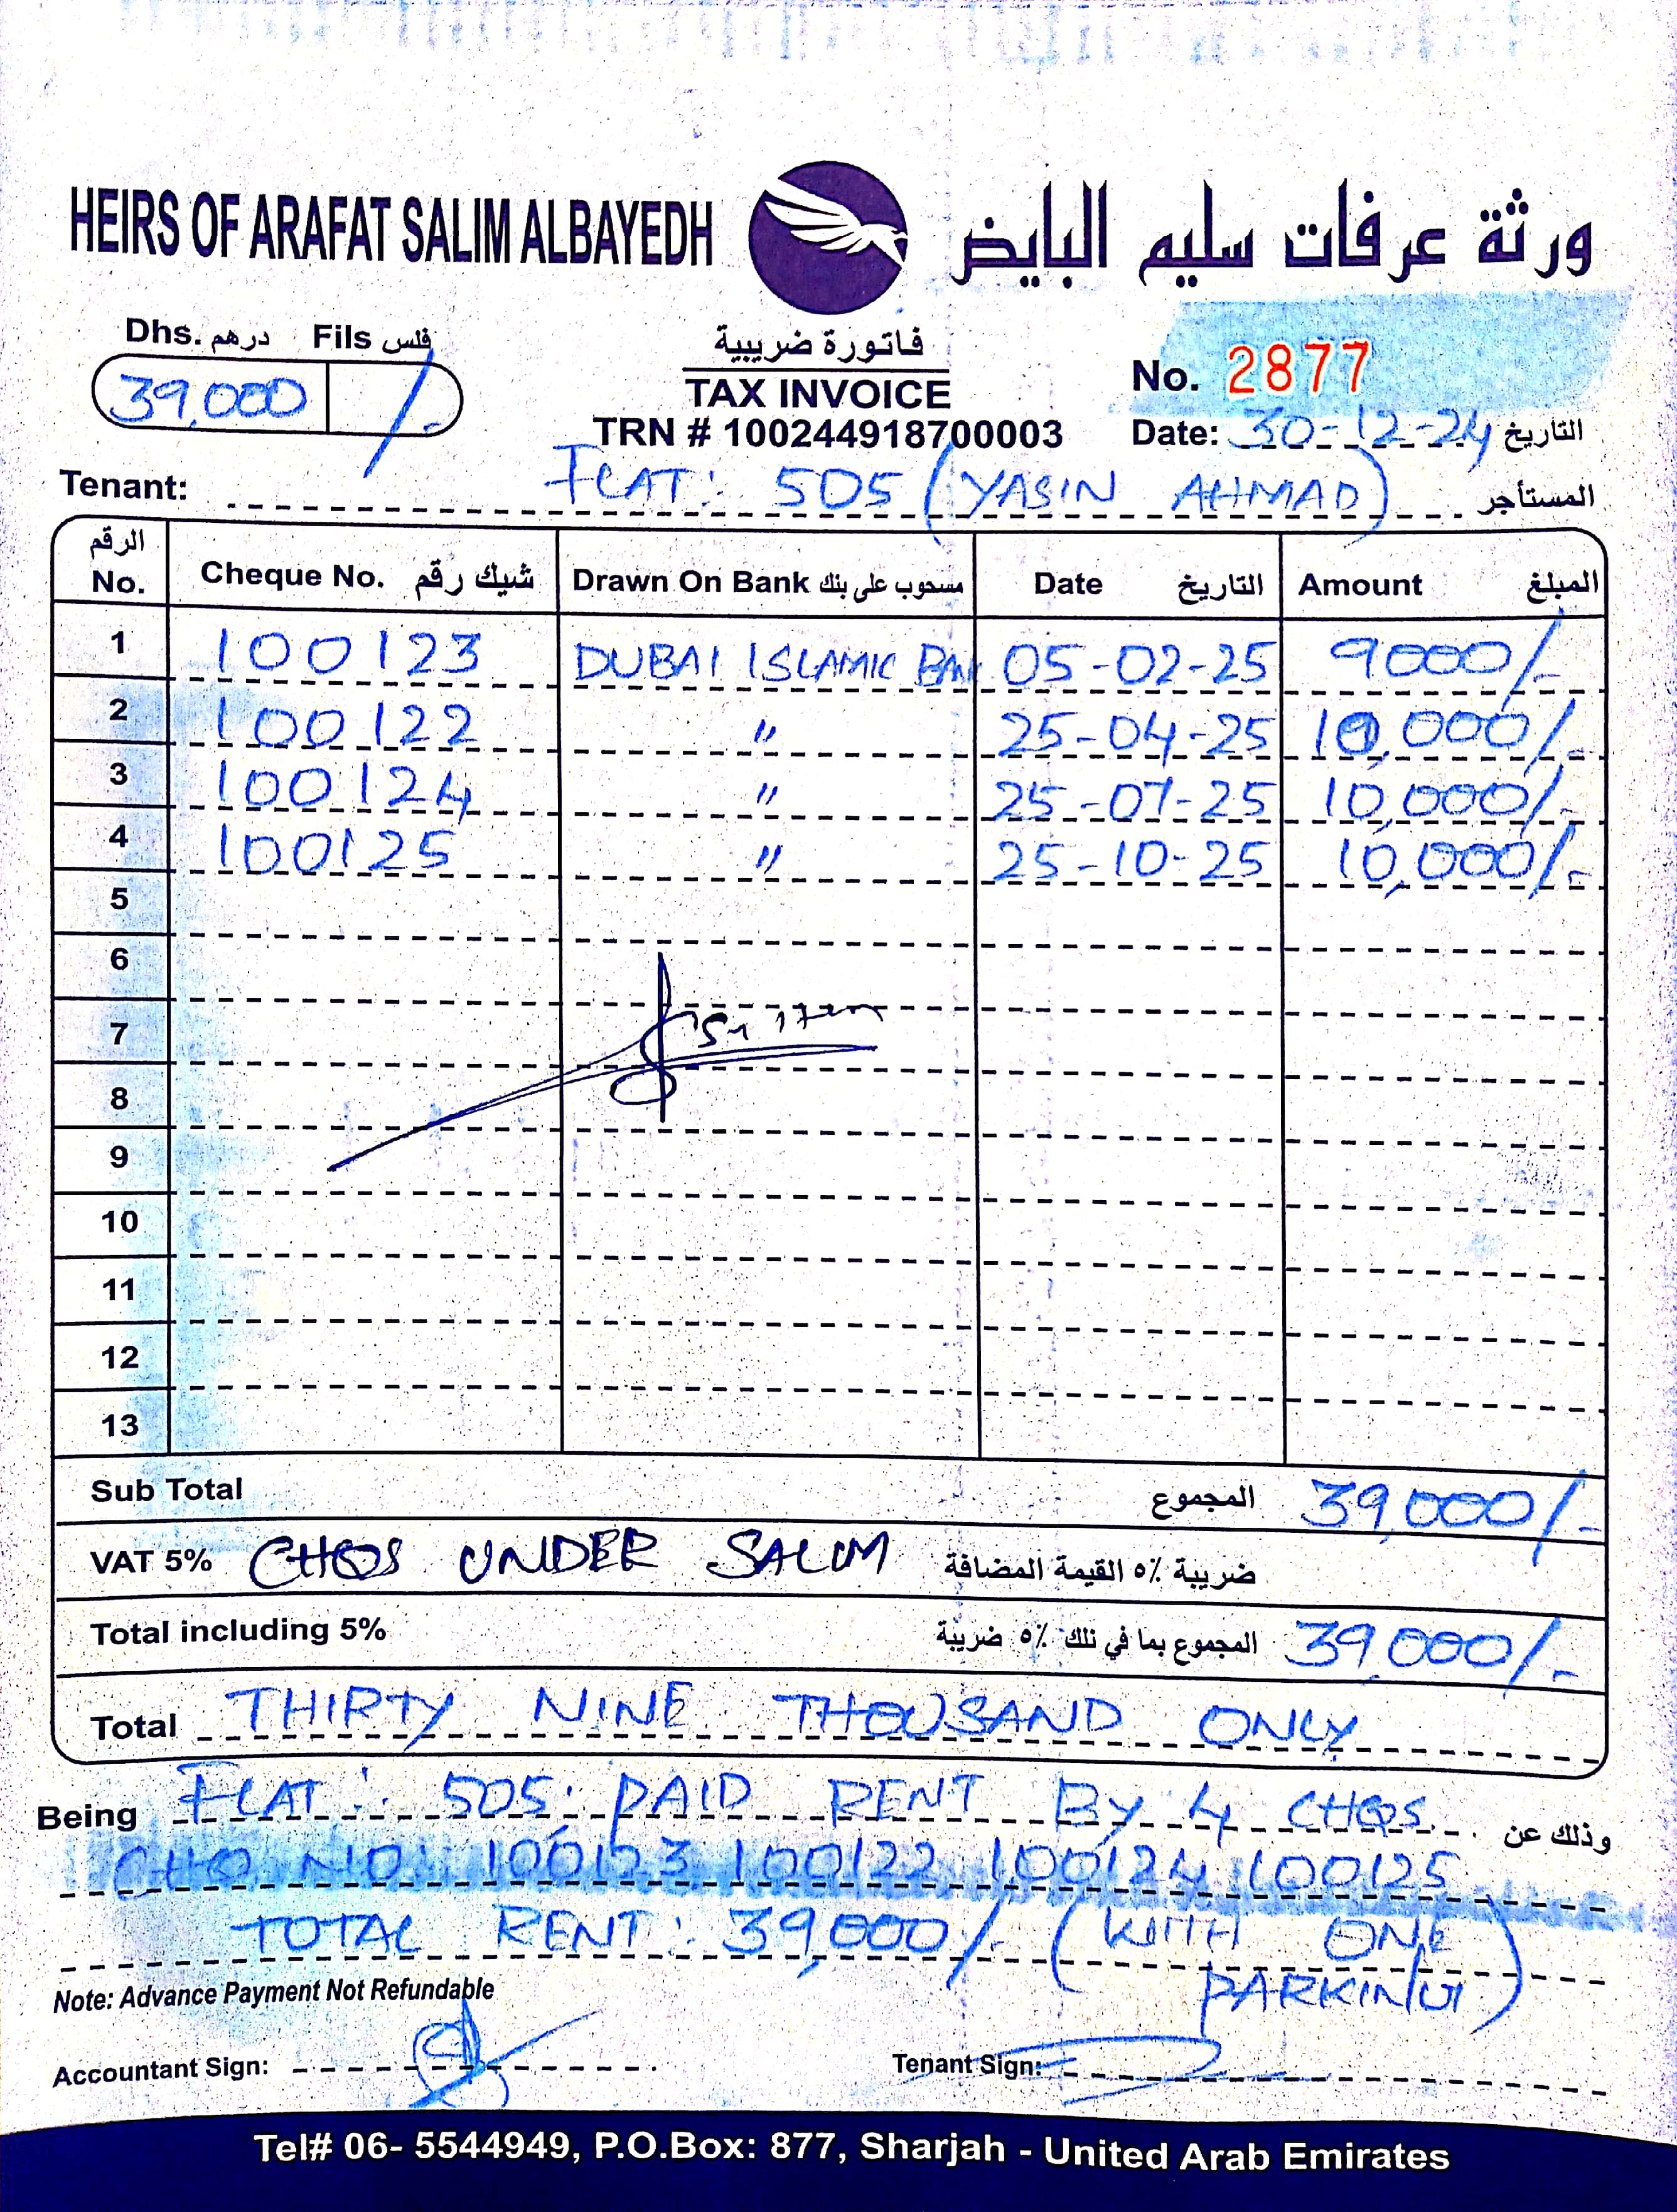 HEIRS OF ARAFAT SALIM ALBAYEDH ورثة عرفات سليم البايض
Dhs. درهم Fils فلس
39,000 /-
فاتورة ضريبية
TAX INVOICE
TRN # 100244918700003
No. 2877
Date: 30-12-24 التاريخ
Tenant: FLAT: 505 (YASIN AHMAD) المستأجر
الرقم No. Cheque No. شيك رقم Drawn On Bank مسحوب على بنك Date التاريخ Amount المبلغ
1 100123 DUBAI ISLAMIC BANK 05-02-25 9000/-
2 100122 " 25-04-25 10,000/-
3 100124 " 25-07-25 10,000/-
4 100125 " 25-10-25 10,000/-
5
6
7
8
9
10
11
12
13
Sub Total المجموع 39,000/-
VAT 5% CHQS UNDER SALIM ضريبة ٥٪ القيمة المضافة
Total including 5% المجموع بما في ذلك ٥٪ ضريبة 39,000/-
Total THIRTY NINE THOUSAND ONLY
Being FLAT: 505: PAID RENT BY 4 CHQS. وذلك عن
CHQ NO: 100123 100122 100124 100125
TOTAL RENT: 39,000/- (WITH ONE
PARKING)
Note: Advance Payment Not Refundable
Accountant Sign: Tenant Sign:
Tel# 06- 5544949, P.O.Box: 877, Sharjah - United Arab Emirates